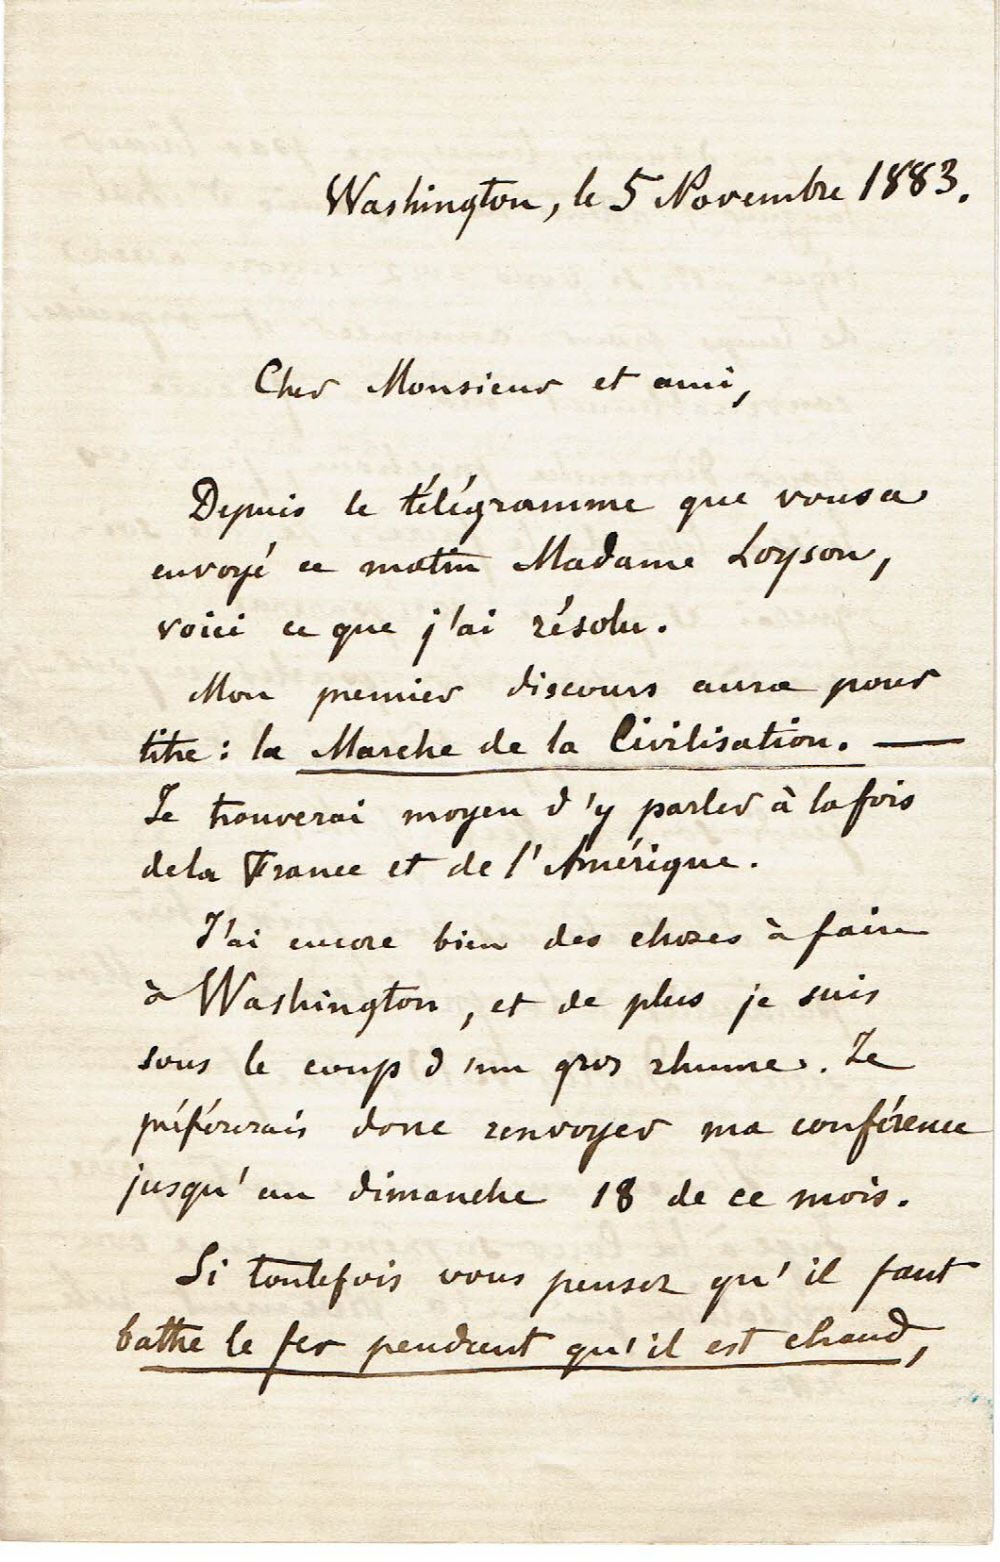 Washington, le 5 Novembre 1883.
Cher Monsieur et ami,
Depuis le télégramme que vous a
envoyé ce matin Madame Loyson,
voici ce que j'ai résolu.
Mon premier discours aura pour
titre : la Marche de la Civilisation. —
Je trouverai moyen d'y parler à la fois
de la France et de l'Amérique.
J'ai encore bien des choses à faire
à Washington, et de plus je suis
sous le coup d'un gros rhume. Je
préférerais donc renvoyer ma conférence
jusqu'au dimanche 18 de ce mois.
Si toutefois vous pensez qu'il faut
battre le fer pendant qu'il est chaud,